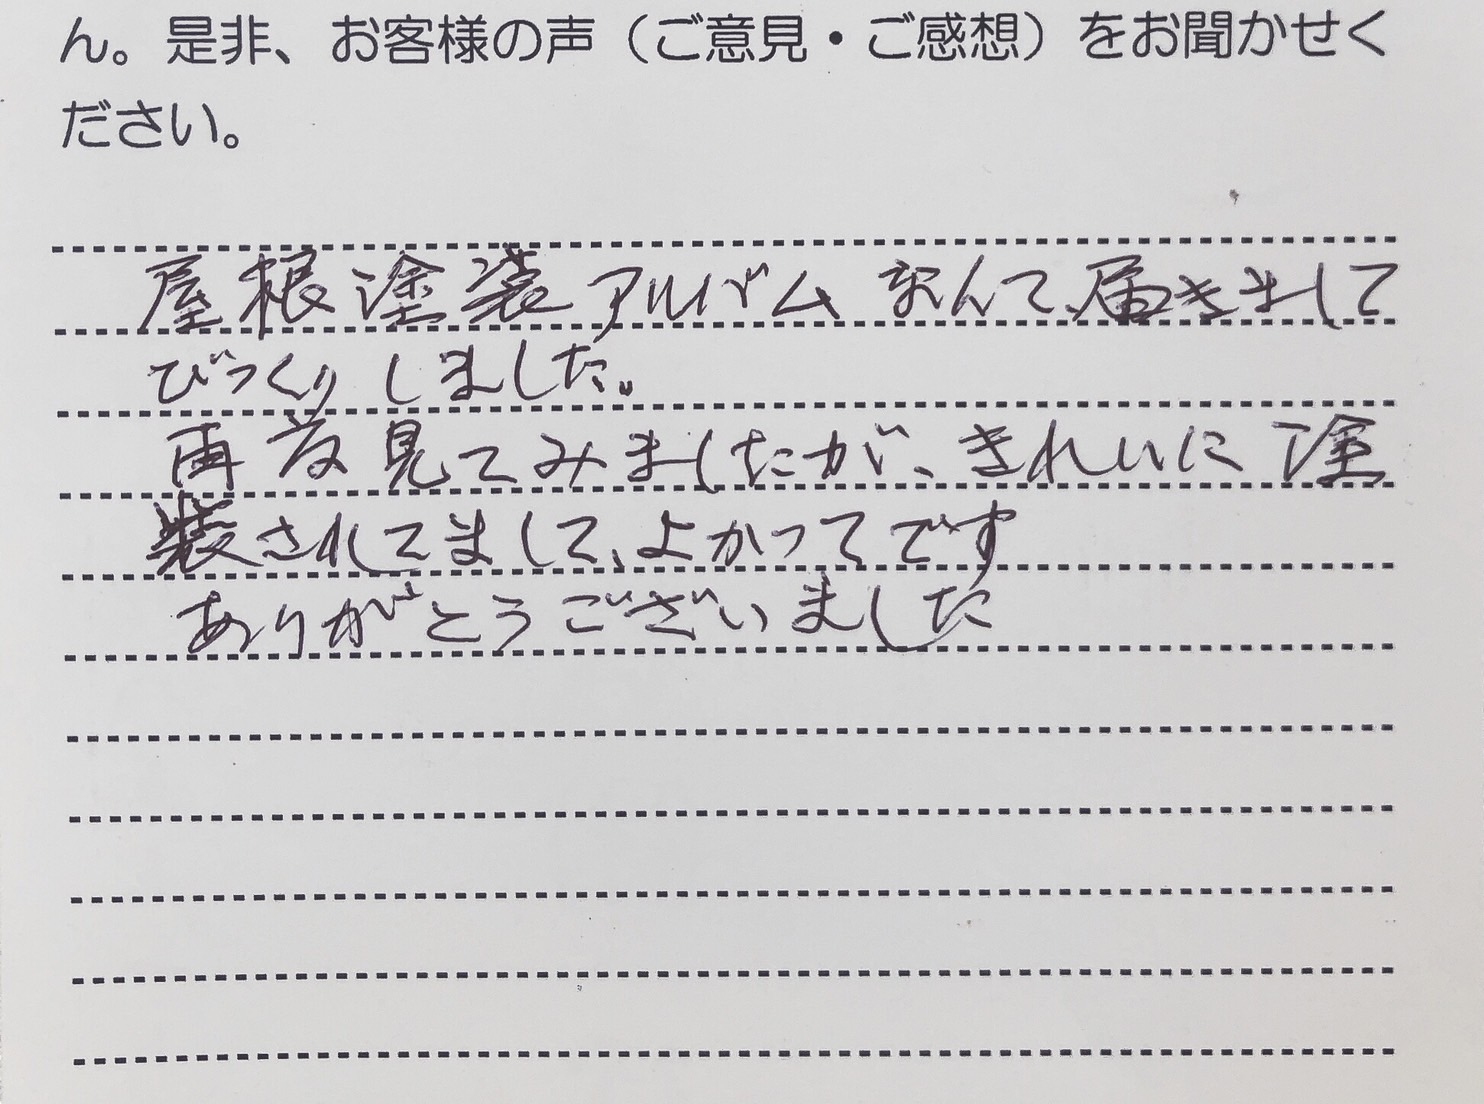 ん。是非、お客様の声（ご意見・ご感想）をお聞かせく
ださい。
屋根塗装アルバムなんて、届きまして
びっくりしました。
再度見てみましたが、きれいに塗
装されてまして、よかってです
ありがとうございました